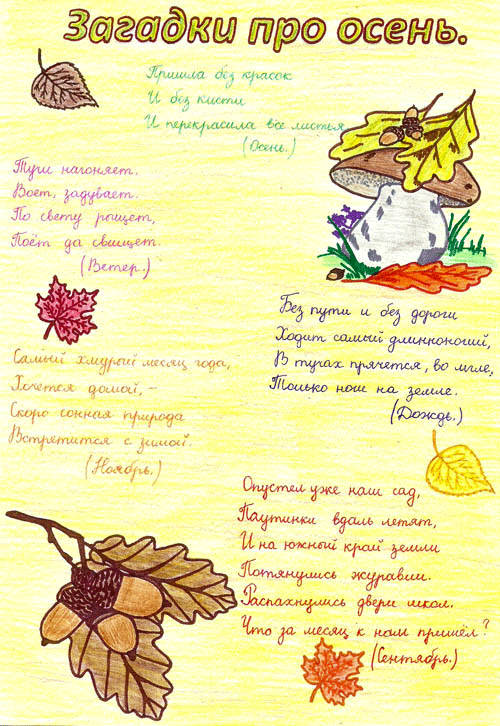 Загадки про осень.
Пришла без красок
И без кисти
И перекрасила все листья
(Осень.)
Тучи нагоняет.
Воет, задувает.
По свету рыщет,
Поёт да свищет.
(Ветер.)
Без пути и без дороги
Ходит самый длинноногий,
В тучах прячется, во мгле,
Только ноги на земле.
(Дождь.)
Самый хмурый месяц года,
Хочется домой, –
Скоро сонная природа
Встретится с зимой.
(Ноябрь.)
Опустел уже наш сад,
Паутинки вдаль летят,
И на южный край земли
Потянулись журавли.
Распахнулись двери школ.
Что за месяц к нам пришёл?
(Сентябрь.)